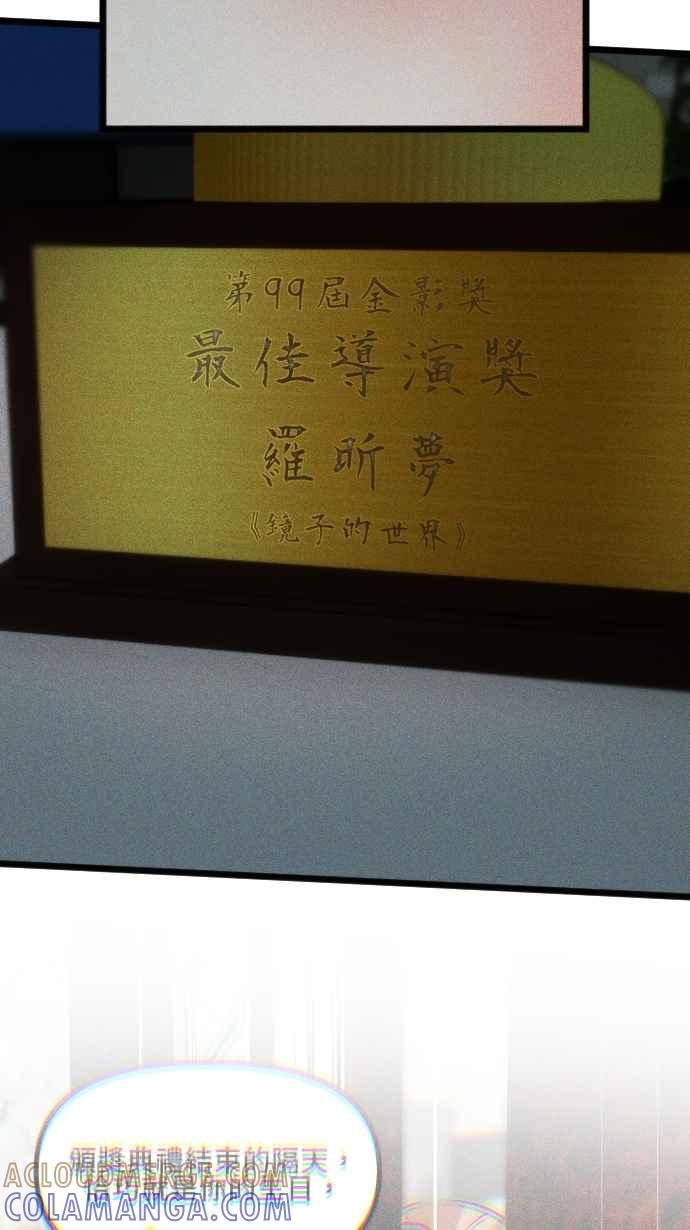 第99屆金影獎
最佳導演獎
羅昕夢
《鏡子的世界》
頒獎典禮結束的隔天，
恰巧就是你的生日，
ACLOUDMERGE.COM
COLAMANGA.COM